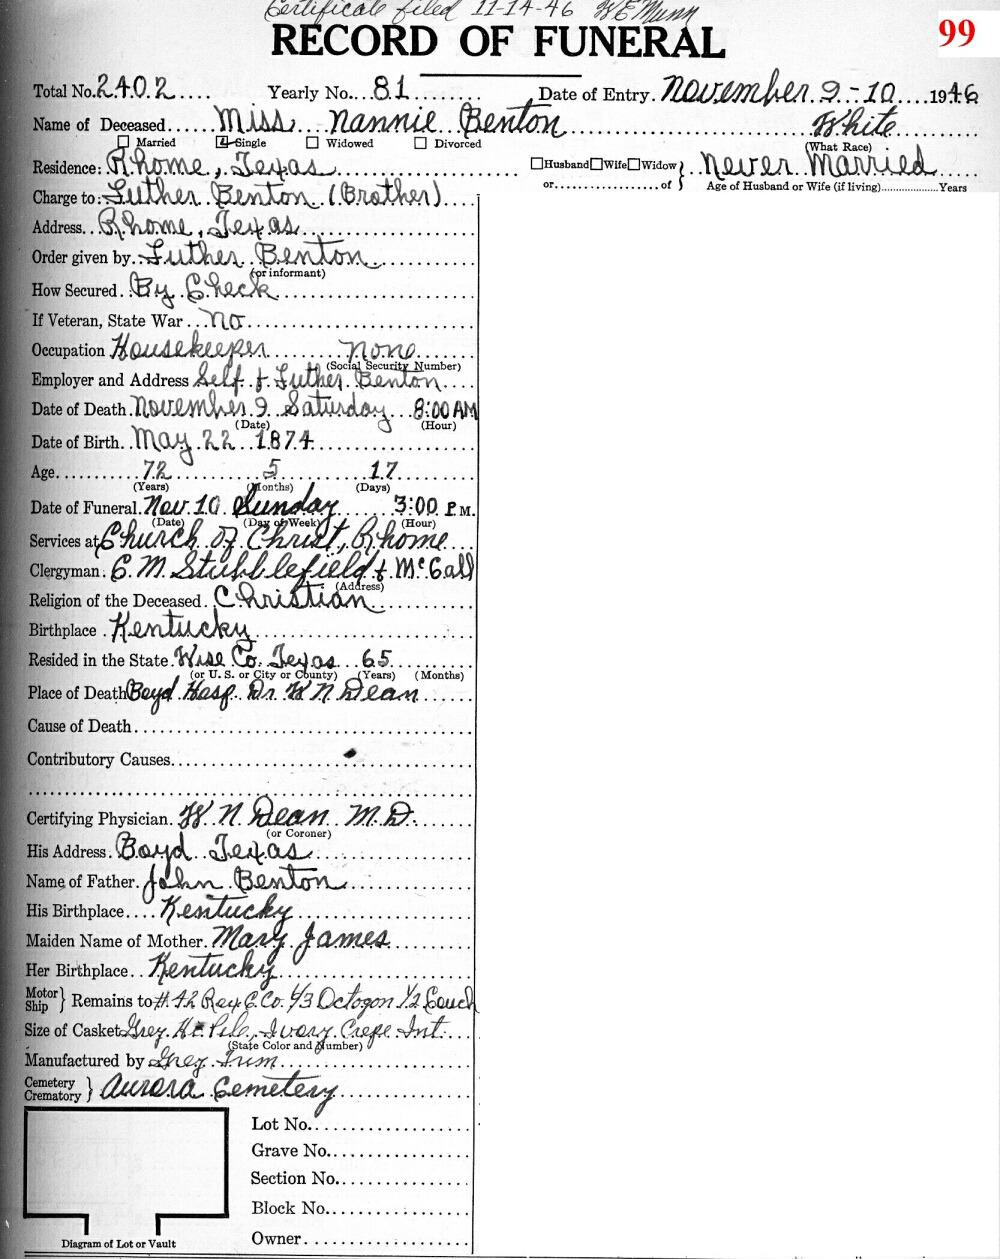 Certificate filed 11-14-46 W E Munn
99
RECORD OF FUNERAL
Total No. 2402 Yearly No. 81 Date of Entry. November 9-10 1946
Name of Deceased Miss Nannie Benton White
Married Single Widowed Divorced (What Race)
Residence: Rhome, Texas Husband Wife Widow } Never Married
or of Age of Husband or Wife (if living) Years
Charge to: Luther Benton (Brother)
Address. Rhome, Texas
Order given by. Luther Benton
(or informant)
How Secured. By Check
If Veteran, State War No
Occupation Housekeeper None
(Social Security Number)
Employer and Address Self & Luther Benton
Date of Death. November 9 Saturday 8:00 AM
(Date) (Hour)
Date of Birth. May 22 1874
Age 72 5 17
(Years) (Months) (Days)
Date of Funeral. Nov. 10 Sunday 3:00 P.M.
(Date) (Day of Week) (Hour)
Services at Church of Christ, Rhome
Clergyman. C. M. Stubblefield & McCall
(Address)
Religion of the Deceased. Christian
Birthplace. Kentucky
Resided in the State. Wise Co. Texas 65
(or U. S. or City or County) (Years) (Months)
Place of Death Boyd Hosp. Dr. W N Dean
Cause of Death
Contributory Causes
Certifying Physician. W. N. Dean M.D.
(or Coroner)
His Address. Boyd Texas
Name of Father. John Benton
His Birthplace Kentucky
Maiden Name of Mother. Mary James
Her Birthplace. Kentucky
Motor
Ship } Remains to #. 42 Rex C. Co. 6/3 Octogon 1/2 Couch
Size of Casket Grey Ht. Pile, Ivory Crepe Int.
(State Color and Number)
Manufactured by Grey Trim
Cemetery
Crematory } Aurora Cemetery
Lot No.
Grave No.
Section No.
Block No.
Owner
Diagram of Lot or Vault